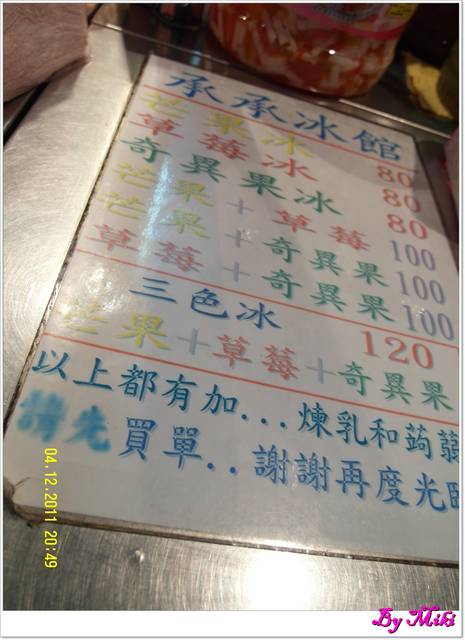 承承冰館
芒果冰 80
草莓冰 80
奇異果冰 80
芒果+草莓 100
芒果+奇異果 100
草莓+奇異果 100
三色冰 120
芒果+草莓+奇異果
以上都有加...煉乳和蒟蒻
請先買單..謝謝再度光臨
04.12.2011 20:49
By Miki